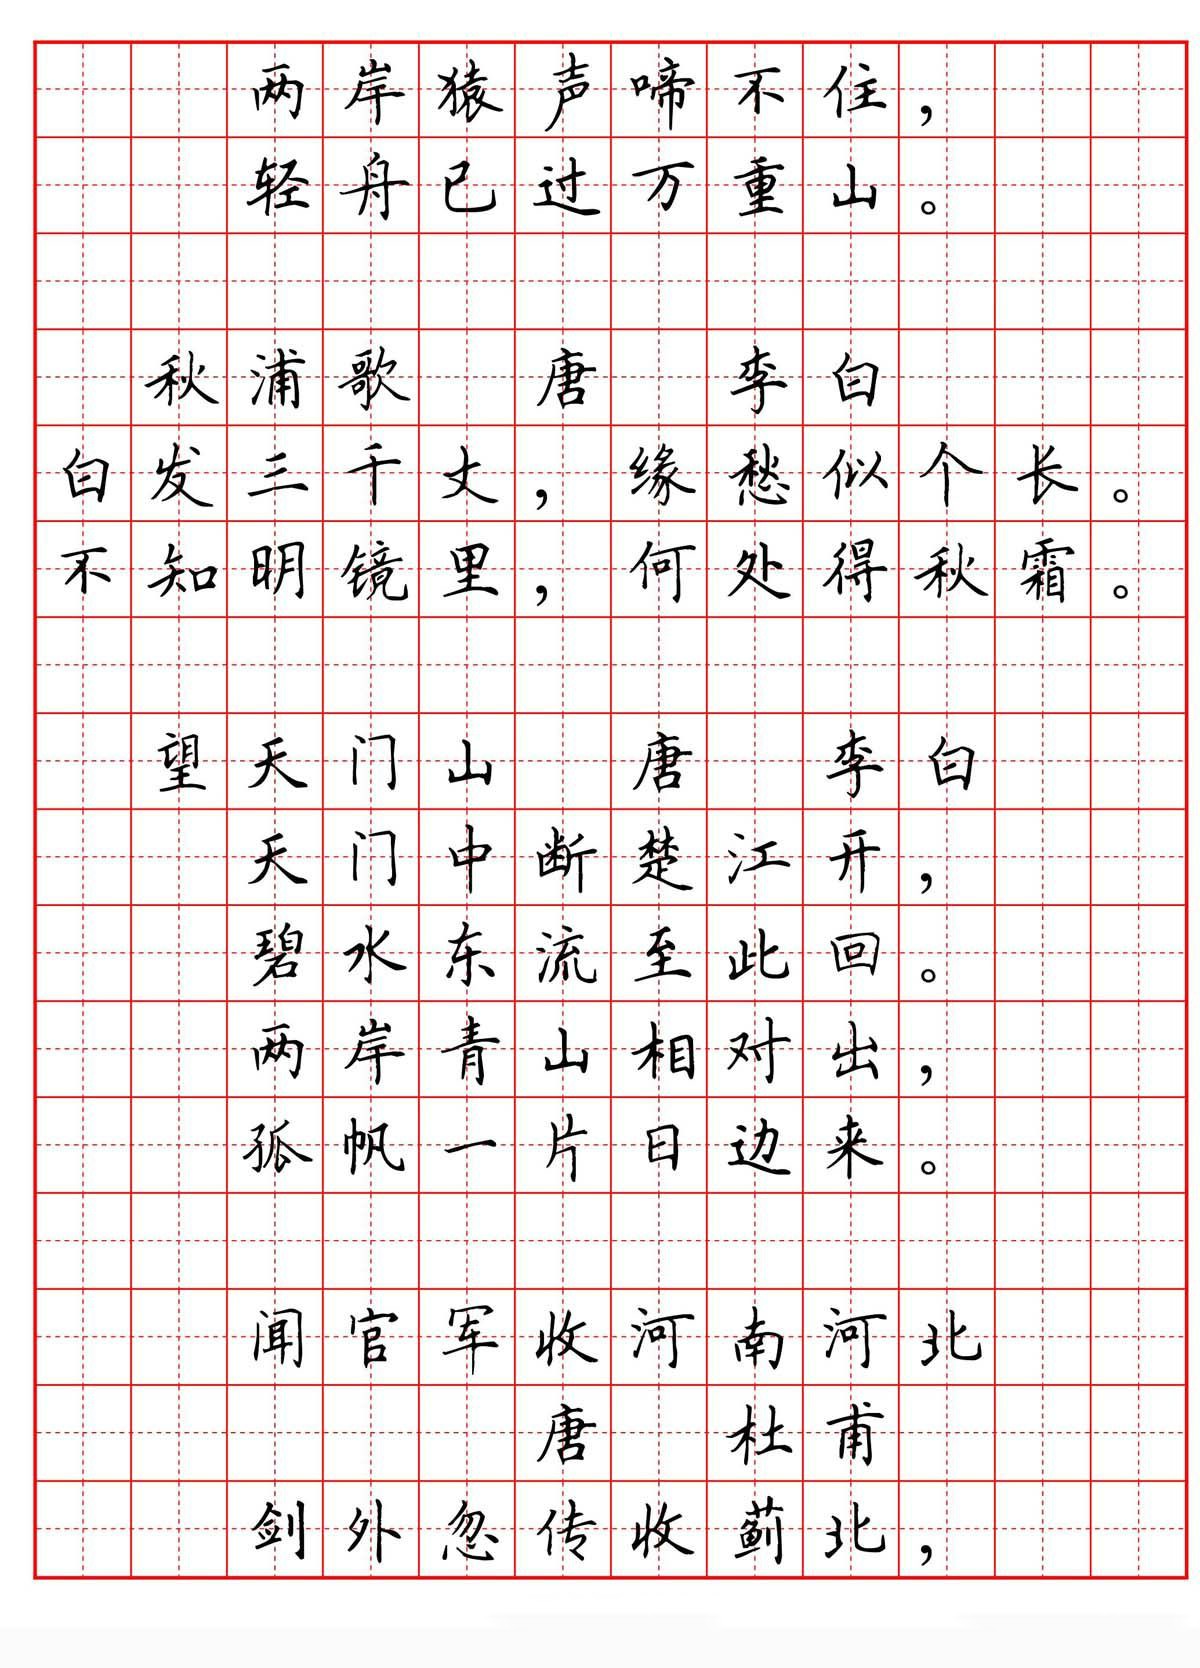 两岸猿声啼不住，
轻舟已过万重山。
秋浦歌 唐 李白
白发三千丈，缘愁似个长。
不知明镜里，何处得秋霜。
望天门山 唐 李白
天门中断楚江开，
碧水东流至此回。
两岸青山相对出，
孤帆一片日边来。
闻官军收河南河北
唐 杜甫
剑外忽传收蓟北，